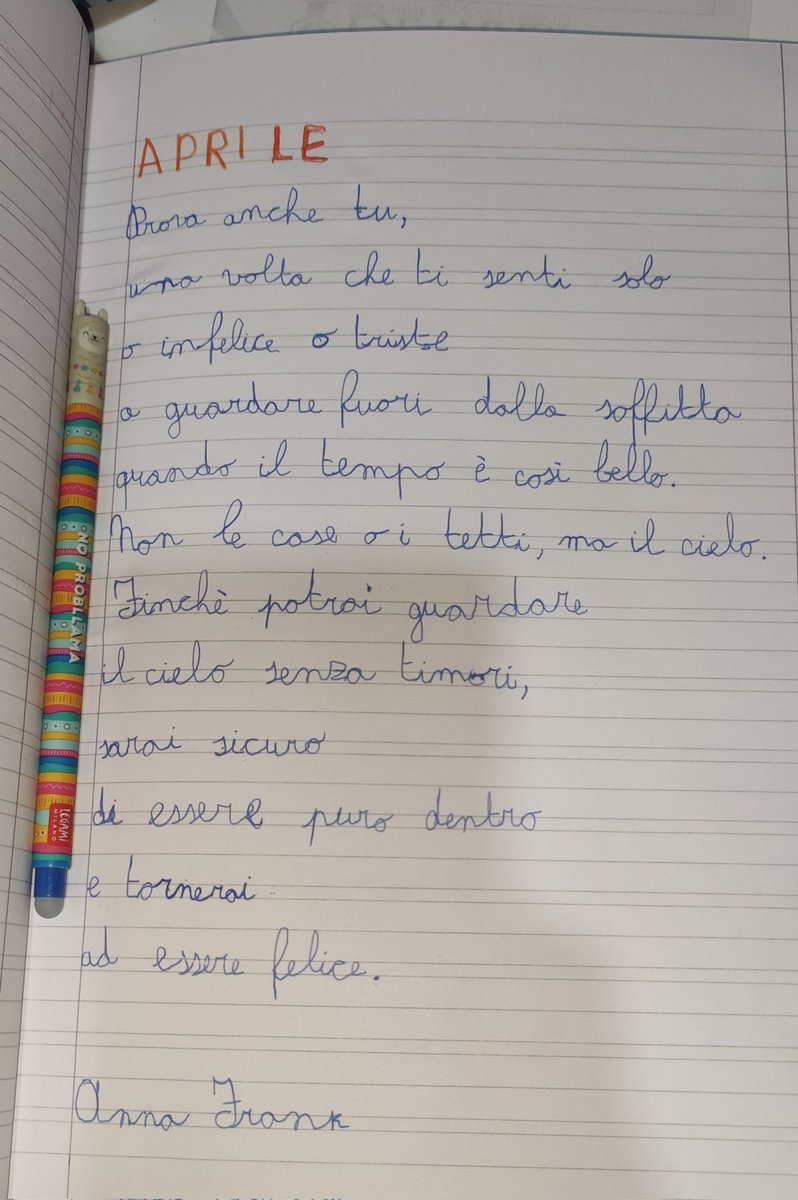 APRILE
Prova anche tu,
una volta che ti senti solo
o infelice o triste
a guardare fuori dalla soffitta
quando il tempo è così bello.
Non le case o i tetti, ma il cielo.
Finchè potrai guardare
il cielo senza timori,
sarai sicuro
di essere puro dentro
e tornerai
ad essere felice.
Anna Frank
NO PROBLLAMA
LEGAMI
MILANO